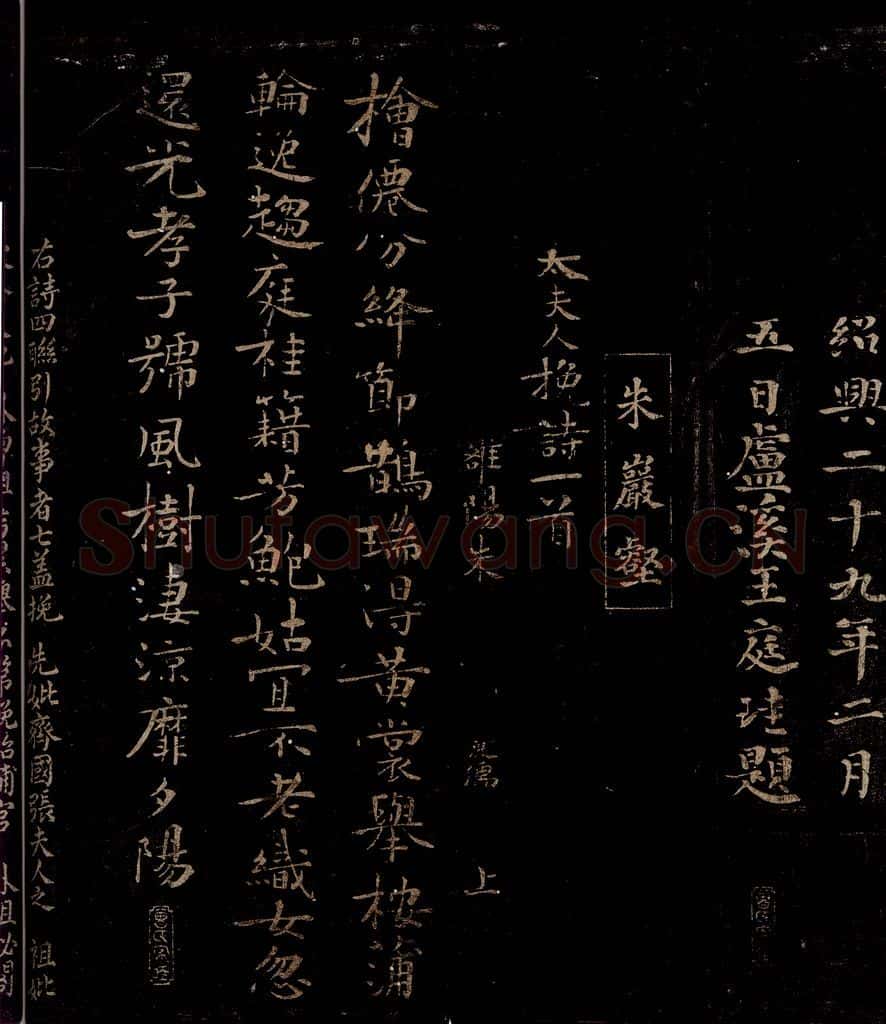 紹興二十九年二月
五日盧溪王庭珪題
朱巖壑
太夫人挽詩一首
雒陽朱 敦儒 上
檜僊分絳節鵲瑞得黃裳舉桉蒲
輪逸趨庭桂籍芳鮑姑宜不老織女忽
還光孝子號風樹淒涼靡夕陽
右詩四聯引故事者七盖挽 先妣齊國張夫人之 祖妣
Shufawang.CN